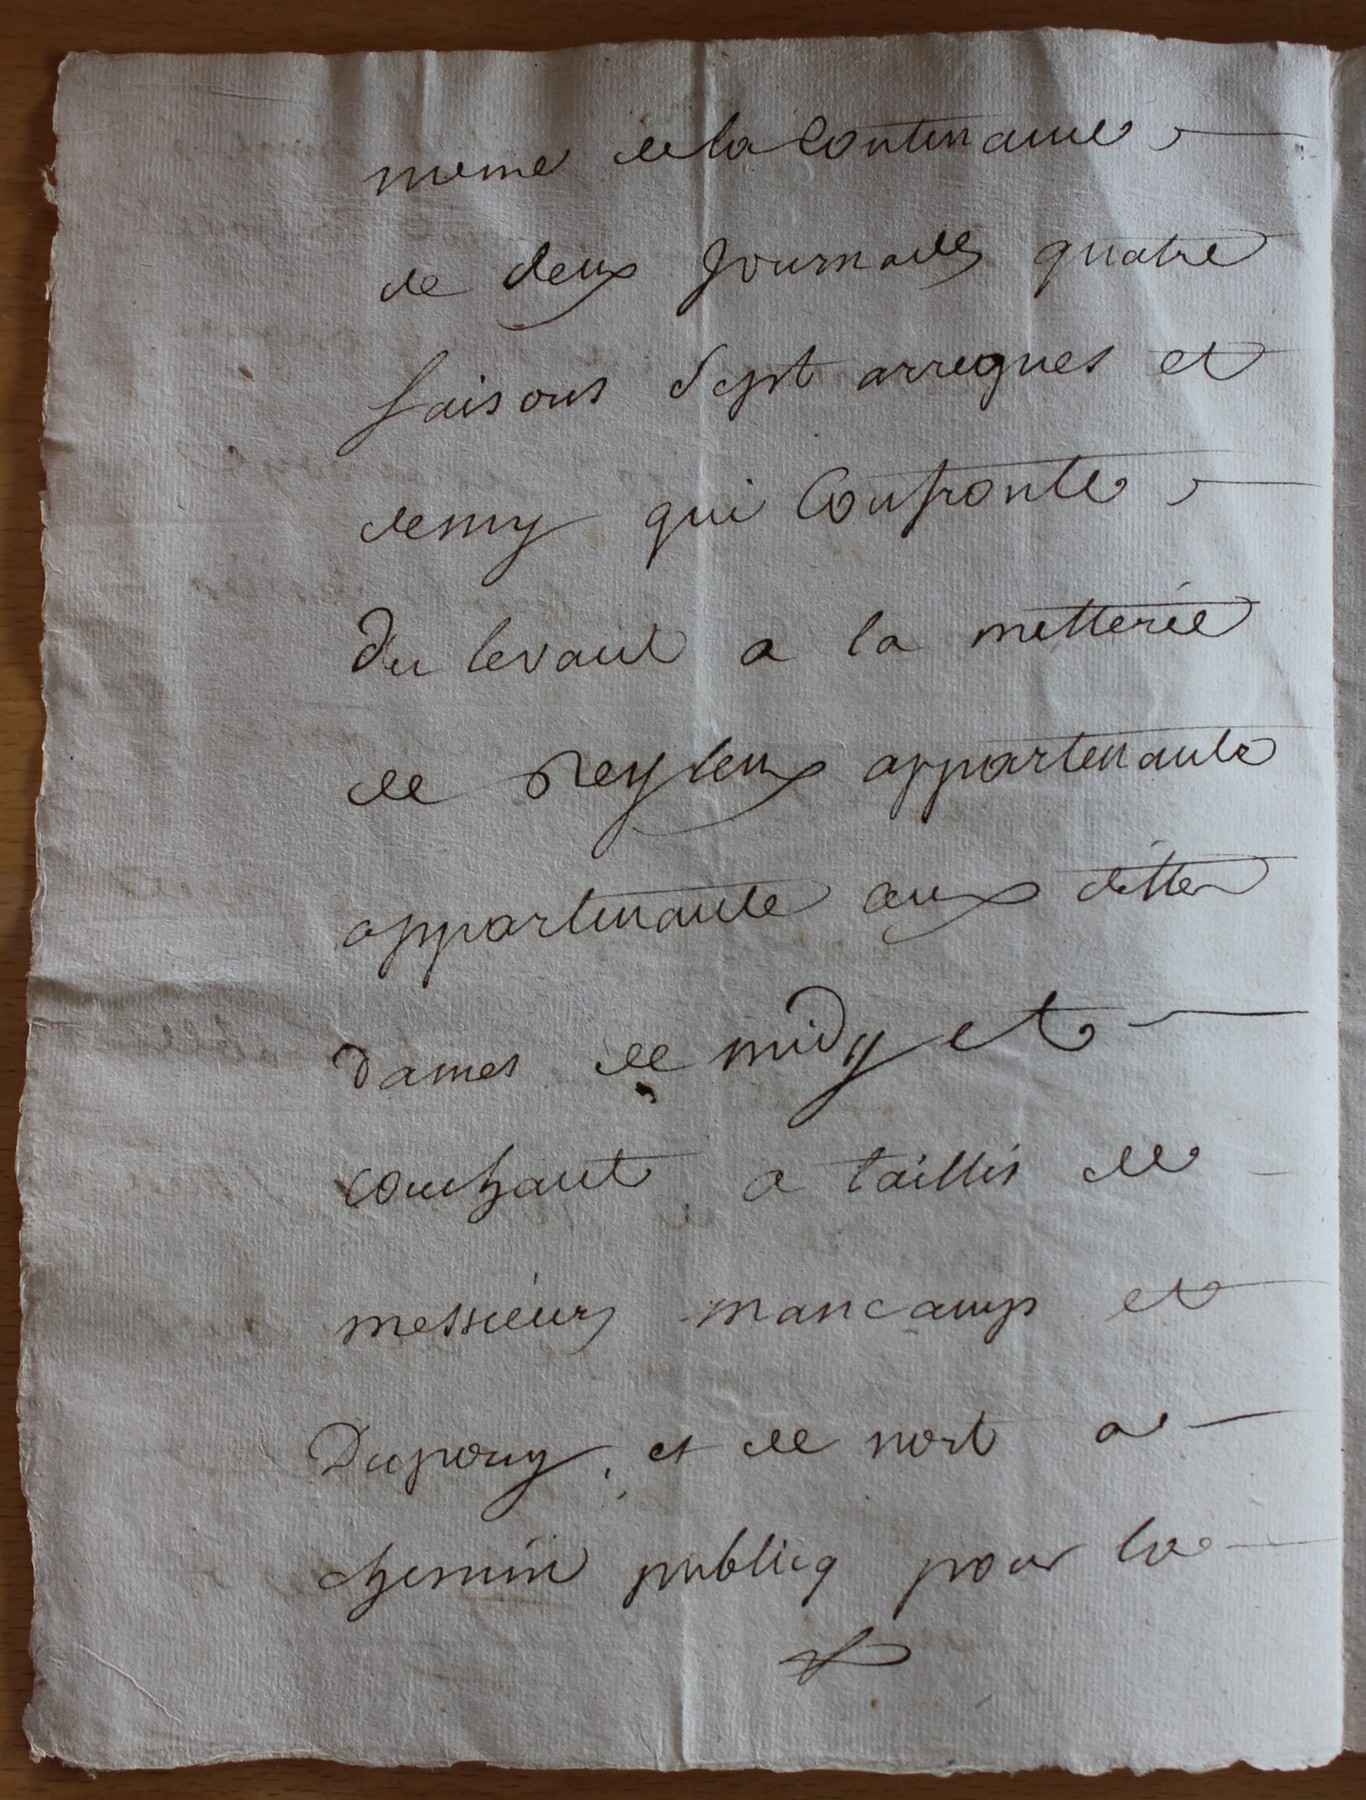 meme de la Contenance
de deux Journades quatre
faisons Sept arregues et
demy qui Confronte
Du levant a la metterie
de appartenante
appartenante aux dittes
Dames de midy et
couchant a taillis de
messieurs mancamps et
Dupouy, et de nort a
chemin publicq pour la